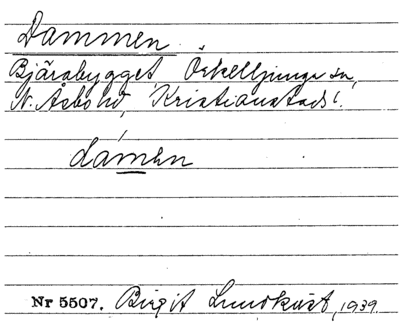 Dammen
Bjärabygget Örkelljunga sn,
N. Åsbo hd, Kristianstads l.
dámen
Nr 5507. Birgit Lundkvist, 1939.